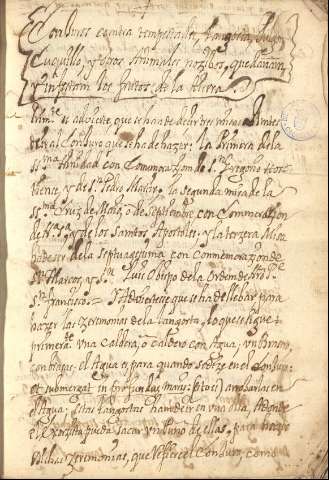 Conjuros contra tempestades, langosta, pulgon
Cuquillo, y otros Animales nozibos, que dañan
y infestan los frutos de la tierra.
se advierte, que se han de dezir tres misas antes
el Conjuro que se ha de hazer: la Primera de la
ss.ma trinidad con Commemorazion de S.n Gregorio
y de S.n Pedro Martir, la segunda misa de la
ss.ma Cruz de de septiembre con Commemorazion
de N.ra y de los Santos Apostoles, y la terzera Misa
ha de ser de la Septuagesima con Conmemorazion de
S.n Marcos, y S.n Luis Obispo de la Orden de N.ro P.e
S.n Francisco = y Adviertese que se ha de llebar para
hazer las Zeremonias de la langosta, lo que se sigue =
primera.te Una Caldera, o Caldero con Agua, Un Brasero
con brasas: el Agua es para quando se dize en el Conjuro:
et submergat in profundum maris: arrojarlas en
el Agua: estas langostas han de ir en una olla, a donde
el Exorzista pueda sacar un puño de ellas, para hazer
Zeremonias, que el Conjuro, como